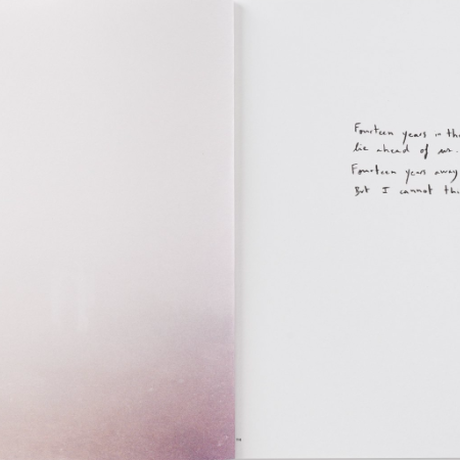 Fourteen years in thi
lie ahead of us.
Fourteen years away
But I cannot thi